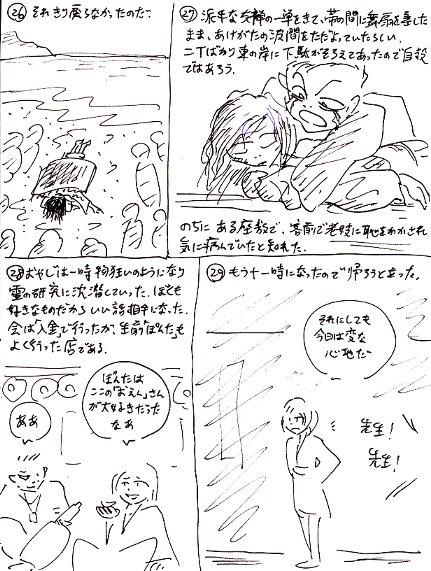 ㉖ それきり戻らなかったのだ…
㉗ 派手な友禅の一単をきて、帯の間に舞扇を差した
まま、あけがたの波間をただよっていたらしい。
二丁ばかり東の岸に下駄がそろえてあったので自殺
ではあろう。
のちにある座敷で、客前で老妓に恥をかかされ
気に病んでいたと知れた。
㉘ おやじは一時物狂いのようになり
霊の研究に沈潜していった。ぼくも
好きなものだからいい話相手になった。
会は八金で行ったが、生前ぽんたも
よく行った店である。
ぽんたは
ここの「おえん」さん
が大好きだった
なあ
ああ
㉙ もう十一時になったので帰ろうと思った。
それにしても
今日は変な
心地だ
先生!
先生!